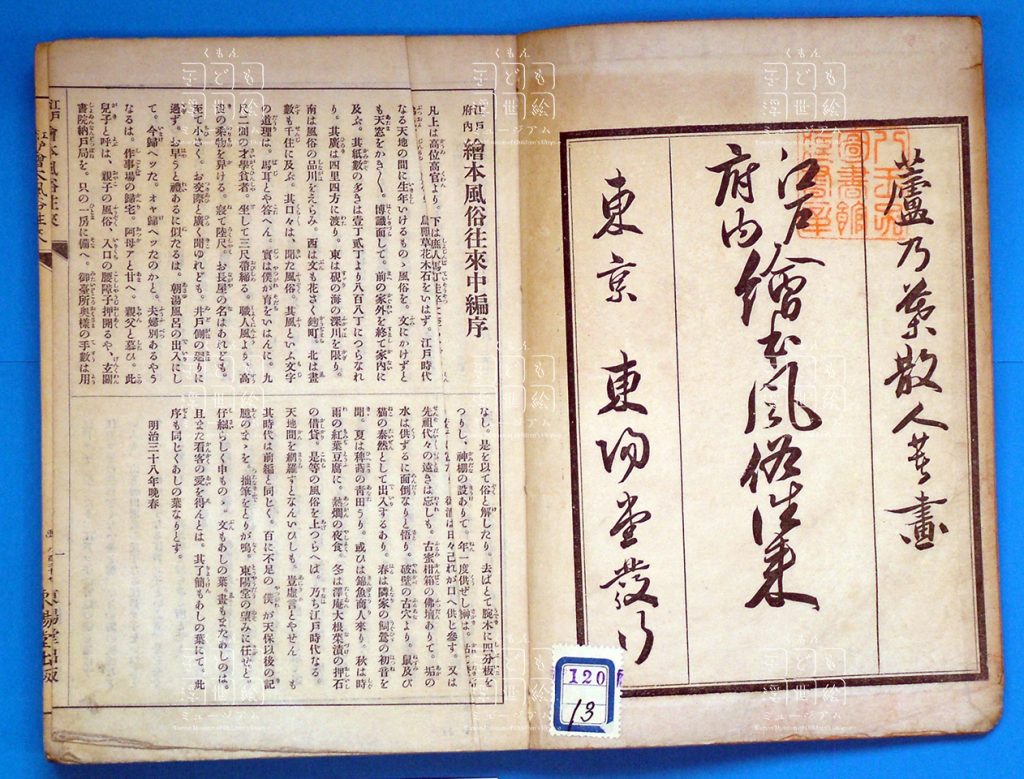 蘆乃葉散人著画
江戸
府内
繪本風俗往来
東京 東陽堂發行
120
13
江戸
府内
繪本風俗往來中編序
なる天地の間に生年いけるものゝ風俗を。文にかけずと
も天窓をかき〱。博識面して。前の家外を終て家内に
及ふ。其紙數の多きは壹丁貳丁より八百八丁につらなれ
り。其廣は四里四方に渡り。東は硯の海の深川を限り。
南は風俗の品川をえらみ。西は文も花さく麹町。北は書
數も千住に及ふ。其口々は。聞た風俗。其風といふ文字
の道理は。馬耳とや答へん。實は僕が育をいはんに。九
尺二間の才學貧者。坐して三尺帶締る。職人風より。高
至て小さく。お交際と廣く聞ゆれども。井戸側の廻りに
過ず。お早うと禮あるに似たるは。朝湯風呂の出入にし
て。今歸ヘッた。オヤ歸ヘッたのかと。夫婦別あるやう
なるは。作事場の歸宅。阿母アと甘へ。親父と慕ひ。此
兒子と呼は。親子の風俗、入口の腰障子押開るや、玄關
書院納戸局を。只の一房に備へ。御臺所奥樣の手數は用
なし。是を以て俗と解したり。去ばとて腕木に四分板を
つりし。神棚の設ありて。年一度供ぜし榊は。
先祖代々の遠さは忘しも。古蜜柑箱の佛壇ありて。垢の
水は供ずるに面倒なりと悟り。破壁の古穴より。鼠及び
猫の泰然として出入するあり。春は隣家の飼鶯の初音を
聞。夏は稗蒔の青田うり。或ひは錦魚商人來り。秋は時
雨の紅葉豆腐に。熱燗の夜食。冬は澤庵大根菜漬の押石
の借貸。是等の風俗を上つらへば。乃ち江戸時代なる。
天地間を網羅すとなんいひしも。豈虚言とやせん も
其時代は前編と同じく。百に不足の 僕 が天保以後の記
臆のまゝを。拙筆をとりが鳴。東陽堂の望みに任せと。
仔細らしく申ものゝ。文もあしの葉。畫もまたあしのは。
且また看客の愛を得んとは。其了簡もあしの葉にて。此
序も同じくあしの葉なりとす。
明治三十八年晩春
江戸繪本風俗往來
東陽堂出版
くもん
子ども
浮世絵
ミュージアム